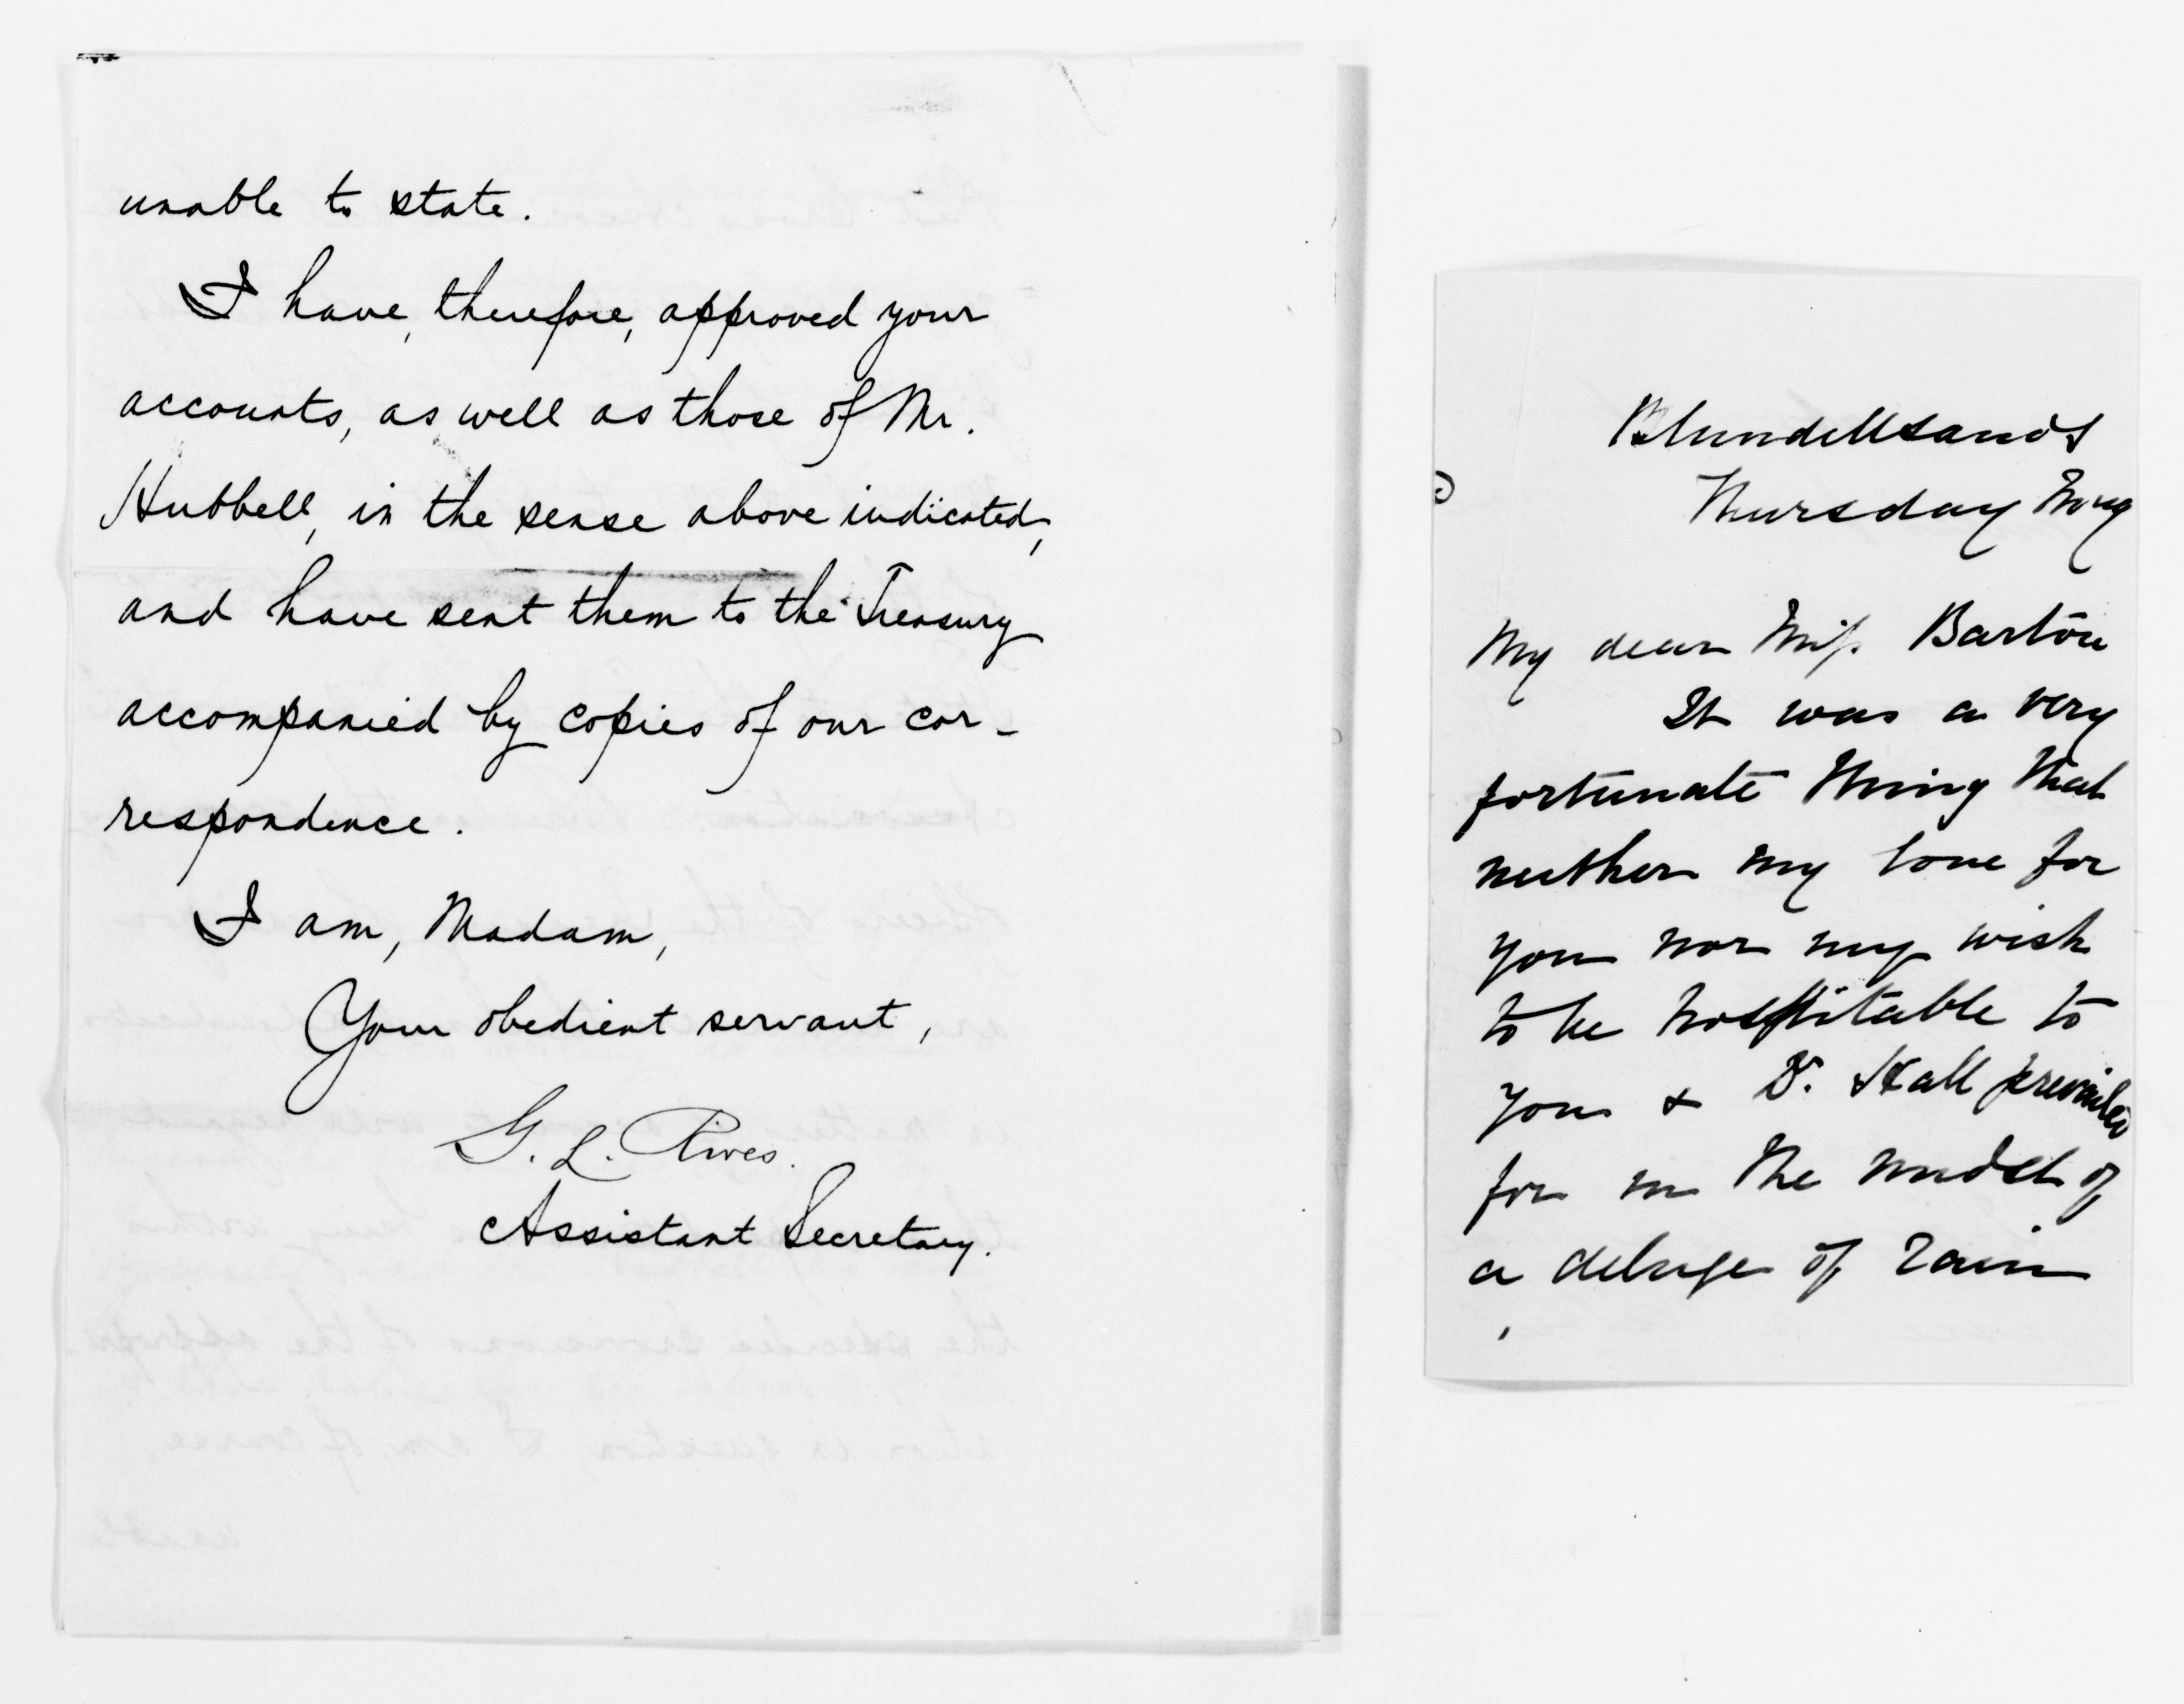 unable to state.
I have, therefore, approved your
accounts, as well as those of Mr.
Hubbell, in the sense above indicated,
and have sent them to the Treasury
accompanied by copies of our cor-
respondence.
I am, Madam,
Your obedient servant,
G. L. Rives.
Assistant Secretary.
Blundellsands
Thursday Mng
My dear Miss Barton
It was a very
fortunate thing that
neither my love for
you nor my wish
to be hospitable to
you & D. Hall prevailed
for in the midst of
a deluge of rain